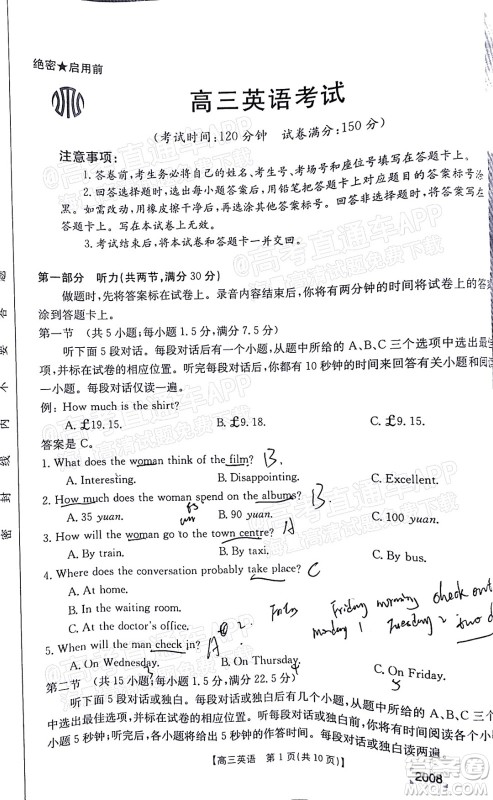 绝密★启用前
高三英语考试
(考试时间:120分钟 试卷满分:150分)
注意事项:
1.答卷前,考生务必将自己的姓名、考生号、考场号和座位号填写在答题卡上。
2.回答选择题时,选出每小题答案后,用铅笔把答题卡上对应题目的答案标号涂
黑。如需改动,用橡皮擦干净后,再选涂其他答案标号。回答非选择题时,将答案写在
答题卡上。写在本试卷上无效。
3.考试结束后,将本试卷和答题卡一并交回。
第一部分 听力(共两节,满分30分)
做题时,先将答案标在试卷上。录音内容结束后,你将有两分钟的时间将试卷上的答案
涂到答题卡上。
第一节 (共5小题;每小题1.5分,满分7.5分)
听下面5段对话。每段对话后有一个小题,从题中所给的A、B、C三个选项中选出最佳
选项。听完每段对话后,你都有10秒钟的时间来回答有关小题和阅读下
一小题。每段对话仅读一遍。
例:How much is the shirt?
A. £19.15. B. £9.18. C. £9.15.
答案是C。
1. What does the woman think of the film? B
A. Interesting. B. Disappointing. C. Excellent.
2. How much does the woman spend on the albums? B
A. 35 yuan. B. 90 yuan. C. 100 yuan.
3. How will the woman go to the town centre? A
A. By train. B. By taxi. C. By bus.
4. Where does the conversation probably take place? C
A. At home.
B. In the waiting room.
C. At the doctor's office.
Friday morning check out
monday 1 Tuesday 2 two
5. When will the man check in? A
A. On Wednesday. B. On Thursday. C. On Friday.
3 4 5
第二节 (共15小题;每小题1.5分,满分22.5分)
听下面5段对话或独白。每段对话或独白后有几个小题,从题中所给的A、B、C三个选项
中选出最佳选项。听每段对话或独白前,你将有时间阅读各个小题,每小题5秒钟;听完后,各
小题将给出5秒钟的作答时间。每段对话或独白读两遍。
【高三英语 第1页(共10页)】
2008
密 封 线 内 不 要 答 题
高考直通车APP